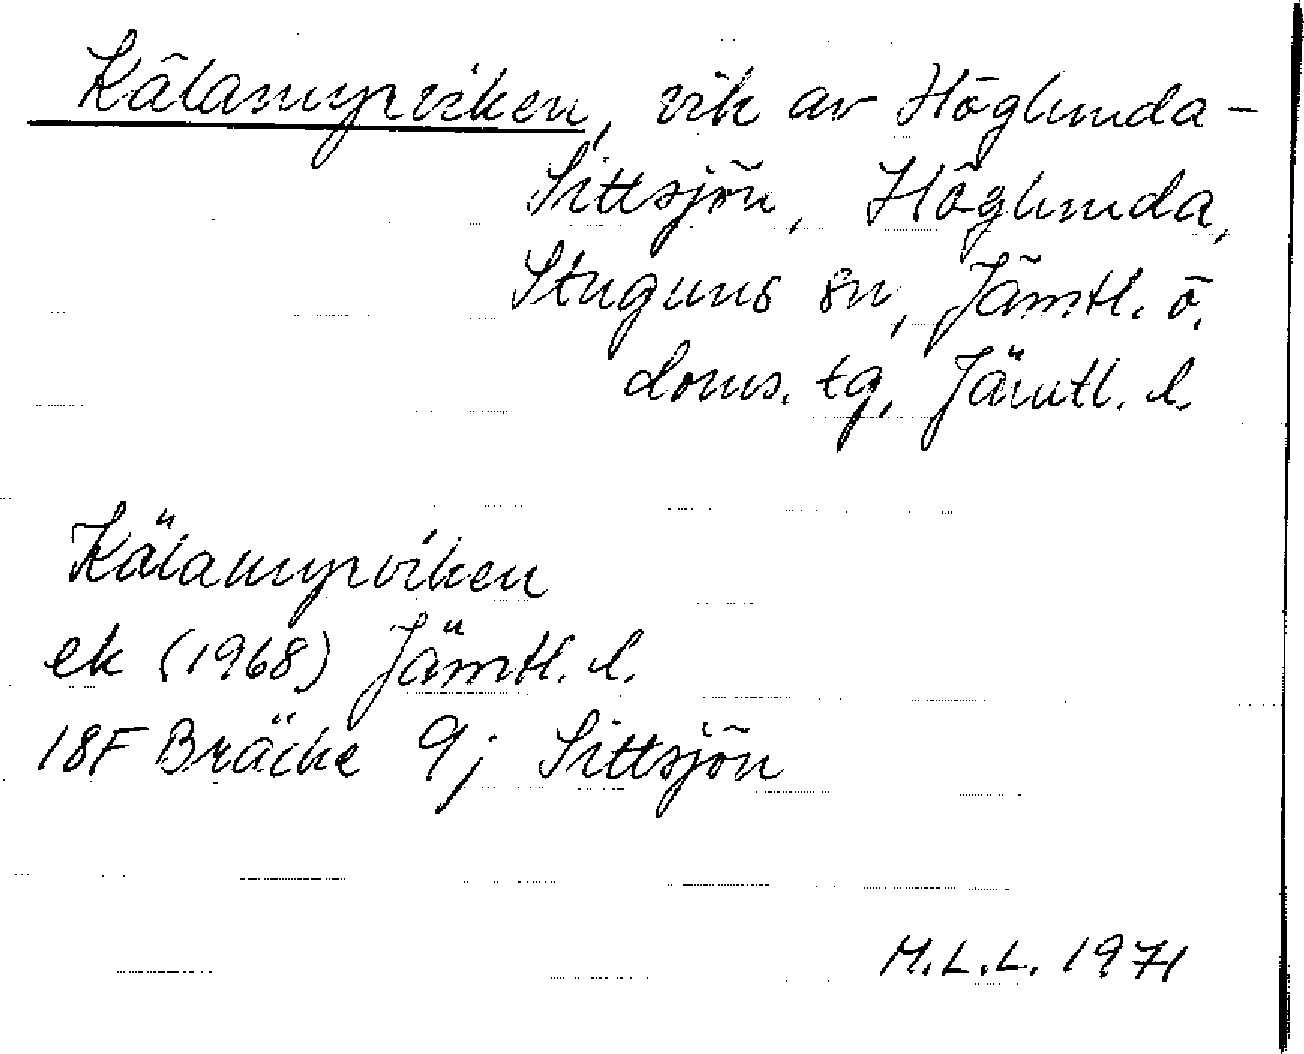 Kälamyrviken, vik av Höglunda-
Sittsjön, Höglunda,
Stuguns sn, Jämtl. ö.
doms. tg, Jämtl. l.
Kälamyrviken
ek (1968) Jämtl. l.
18F Bräcke 9j Sittsjön
M.L.L. 1971